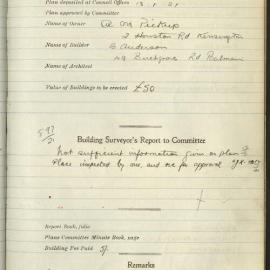 Plan deposited at Council Offices 13.1.21
Plan approved by Committee
Name of Owner
2 Houston Rd Kensington
Name of Builder B Anderson
Rd Balmain
Name of Architect
Value of Buildings to be erected £50
Building Surveyor's Report to Committee
Not sufficient information given on plan
Place inspected by me, and for approval
Report Book, folio
Plans Committee Minute Book, page
Building Fee Paid 5/-
Remarks